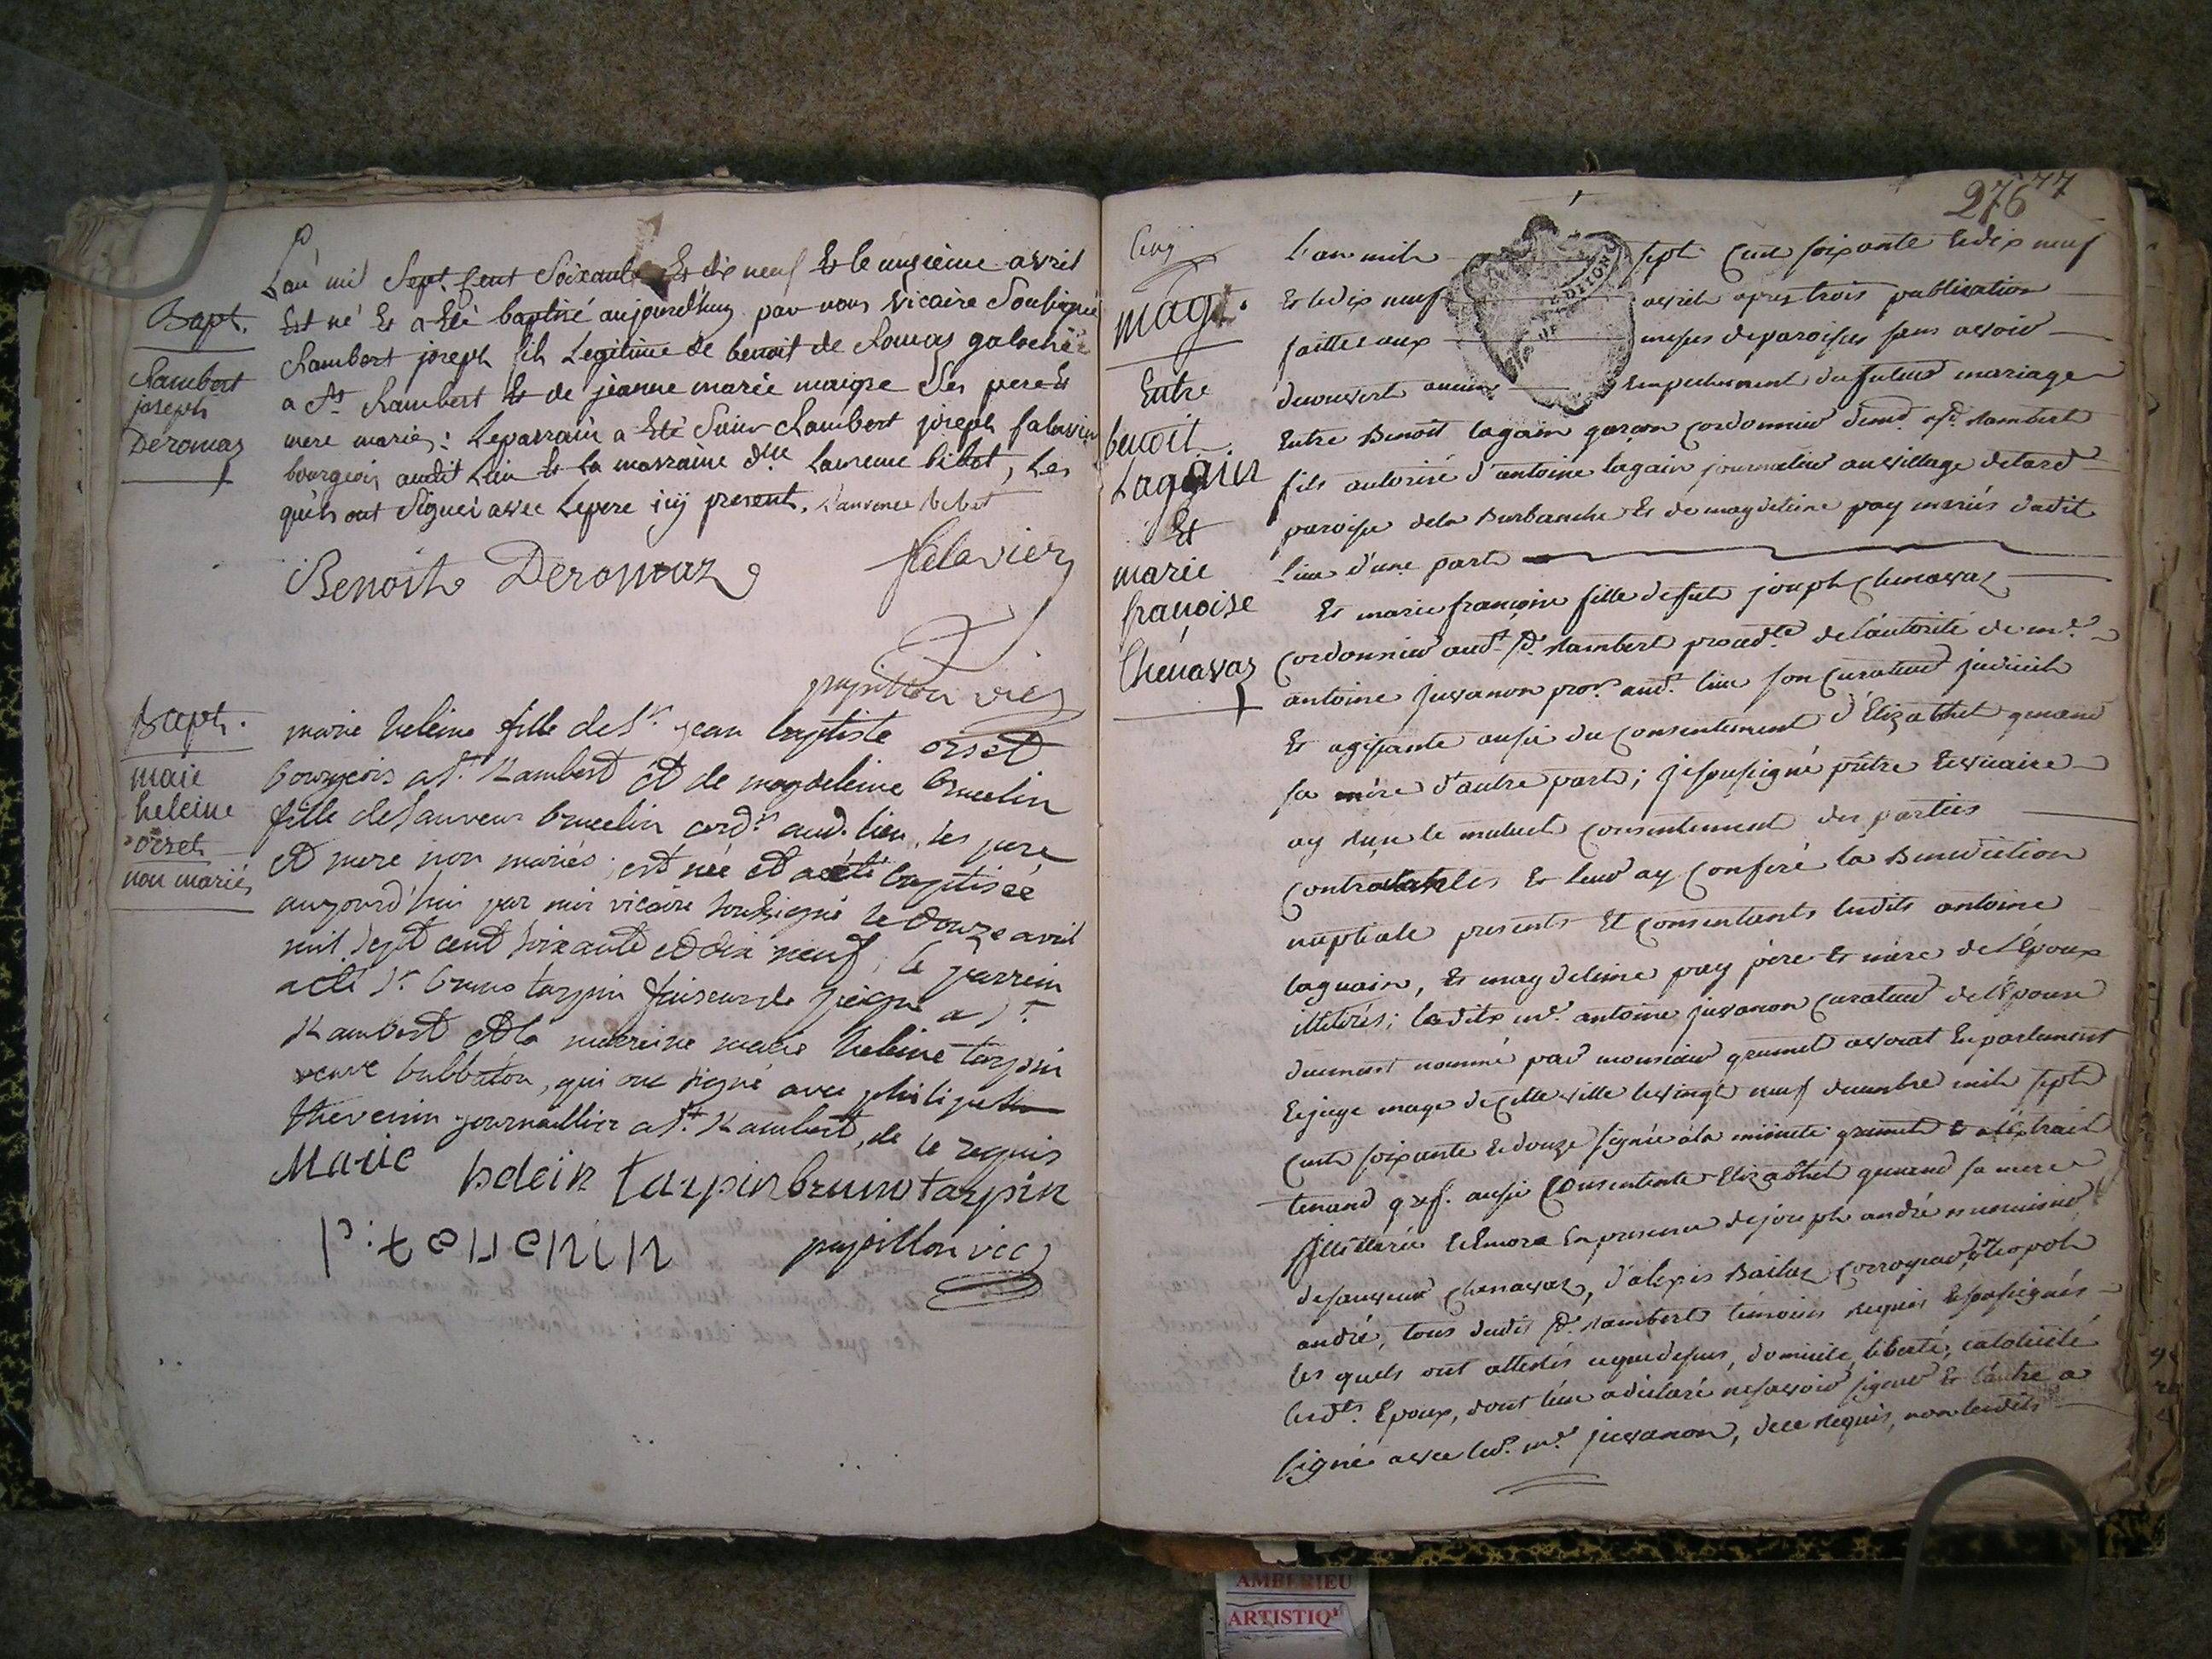 Bapt.
Rambert
joseph
Deromaz
L'an mil Sept Cent Soixante Et dix neuf Et le onzieme avril
Est né Et a Eté baptisé aujourd'huy par nous vicaire Soussigné
Rambert joseph fils Legitime de benoit de Romaz galochier
a St Rambert Et de jeanne marie maigre Ses pere Et
mere mariés: Le parrain a Eté Sieur Rambert joseph falavier
bourgeois audit Lieu Et la marraine dlle Laurence bibet, Les
quels ont Signé avec Le pere icy present. Laurence bibet
Benoit Deromaz falavier
papillon vic
Bapt.
marie
heleine
orset
non mariés
marie heleine fille de Sr jean baptiste orset
bourgeois a St Rambert et de magdeleine bruelin
fille de Sauveur bruelin cordr aud. lieu, ses pere
et mere non mariés; est née et a été baptisée
aujourd'hui par moi vicaire soussigné le douze avril
mil sept cent soixante et dix neuf; le parrein
a été Sr bruno tarpin faiseur de peigne a St
Rambert et la marreine marie heleine tarpin
veuve bubbaton, qui ont signé avec philipe
thevenin journallier a St Rambert, de ce requis
Marie helein tarpin bruno tarpin
p: tevenin papillon vic
276 77
Cinq
mage.
Entre
benoit
Lagain
Et
marie
françoise
Chenavaz
L'an mil sept Cent soixante et dix neuf
Et le dix neuf avril apres trois publication
faittes aux messes de paroisses sans avoir
decouvert aucun Empechement du futur mariage
Entre Benoit lagain garçon cordonnier demt a St Rambert
fils autorisé d'antoine lagain journalier au village de tard
paroisse de la Burbanche Et de magdeleine pay mariés dudit
lieu d'une part
Et marie françoise fille de feu joseph Chenavaz
Cordonnier aud. St Rambert proced.te de l'autorité de me
antoine juvanon pror. aud. lieu son Curateur judiciel
Et agissante aussi du Consentement d'Elizabhet genand
sa mère d'autre part; je soussigné prêtre et vicaire
ay reçu le mutuel Consentement des parties
Contractantes Et leur ay Conferé la Benediction
nuptiale presents Et Consentants lesdits antoine
laguain, Et magdeleine pay père Et mère de l'Epoux
illiterés; ledit me antoine juvanon Curateur de l'Epouse
duement nommé par monsieur grumet avocat En parlement
Et juge mage de Cette ville le vingt neuf decembre mil sept
Cent soixante et douze signée à la minute grumet Et a l'extrait
tenand gref. aussi Consentente Elizabhet genand sa mere
illiterée et Encore En presence de joseph andré menuisier
de sauveur Chenavaz, d'alexis Bailaz Corroyeur, leopold
andré, tous dudit St Rambert temoins requis Et soussignés
les quels ont attestés ce que dessus, domicile, liberté, catolicité
desdts Epoux, dont l'un a déclaré ne savoir signer Et l'autre a
signé avec led. me juvanon, de ce requis, non lesdits
AMBERIEU
ARTISTIQ'